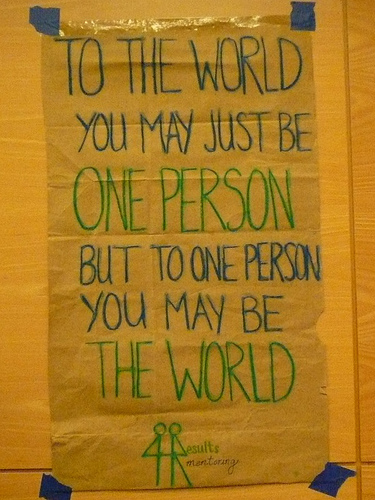 TO THE WORLD
YOU MAY JUST BE
ONE PERSON
BUT TO ONE PERSON
YOU MAY BE
THE WORLD
4Results
mentoring